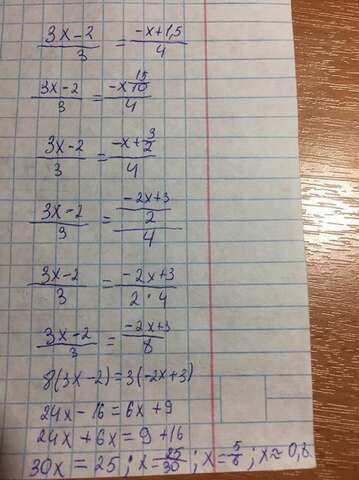 (3x-2)/3 = (-x+1,5)/4
(3x-2)/3 = (-x 15/10)/4
(3x-2)/3 = (-x+3/2)/4
(3x-2)/3 = ((-2x+3)/2)/4
(3x-2)/3 = (-2x+3)/(2·4)
(3x-2)/3 = (-2x+3)/8
8(3x-2)=3(-2x+3)
24x-16=6x+9
24x+6x=9+16
30x=25; x=25/30; x=5/6; x≈0,8.